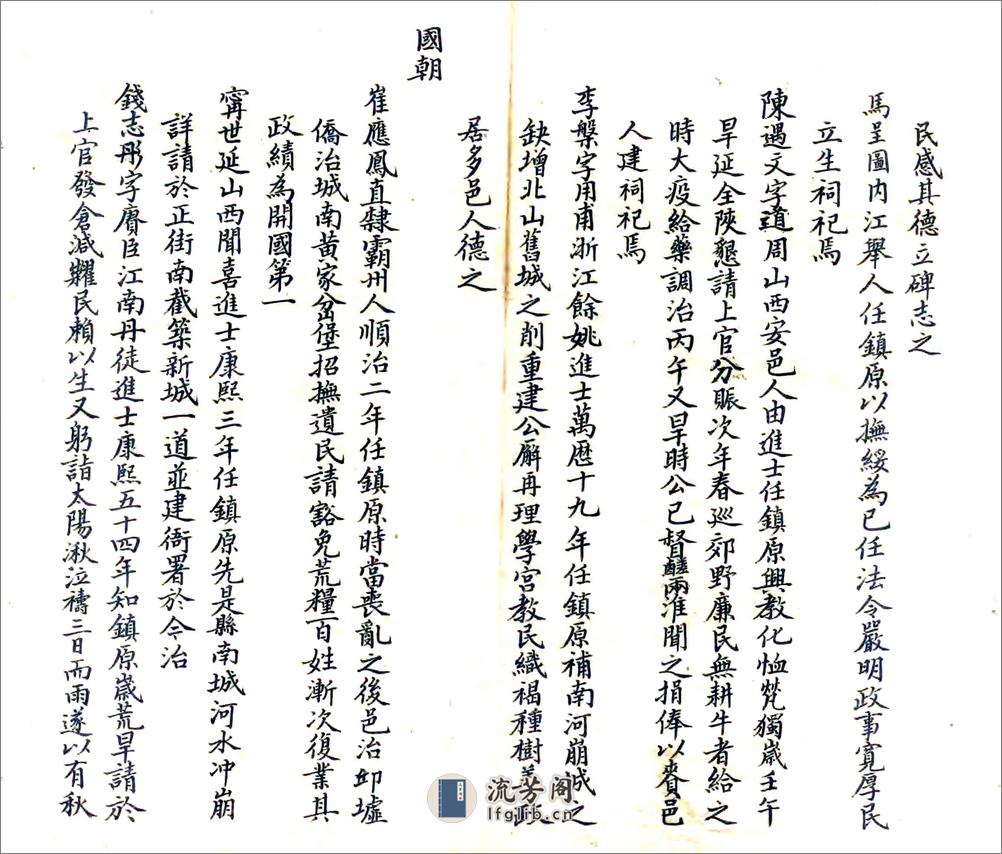 民感其德立碑志之
馬呈圖內江舉人任鎮原以撫綏為己任法令嚴明政事寬厚民
立生祠祀焉
陳遇文字道周山西安邑人由進士任鎮原興教化恤煢獨歲壬午
旱延全陝懇請上官分賑次年春巡郊野廉民無耕牛者給之
時大疫給藥調治丙午又旱時公已督鹺兩淮聞之捐俸以賚邑
人建祠祀焉
李槃字用甫浙江餘姚進士萬曆十九年任鎮原補南河崩城之
缺增北山舊城之削重建公廨再理學宮教民織褐種樹美政
居多邑人德之
國朝
崔應鳳直隸霸州人順治二年任鎮原時當喪亂之後邑治邱墟
僑治城南黃家岔堡招撫遺民請豁免荒糧百姓漸次復業其
政績為開國第一
甯世延山西聞喜進士康熙三年任鎮原先是縣南城河水冲崩
詳請於正街南截築新城一道並建衙署於今治
錢志彤字賡臣江南丹徒進士康熙五十四年知鎮原歲荒旱請於
上官發倉減糶民賴以生又躬詣太陽湫泣禱三日而雨遂以有秋
流芳阁
lfglib.cn